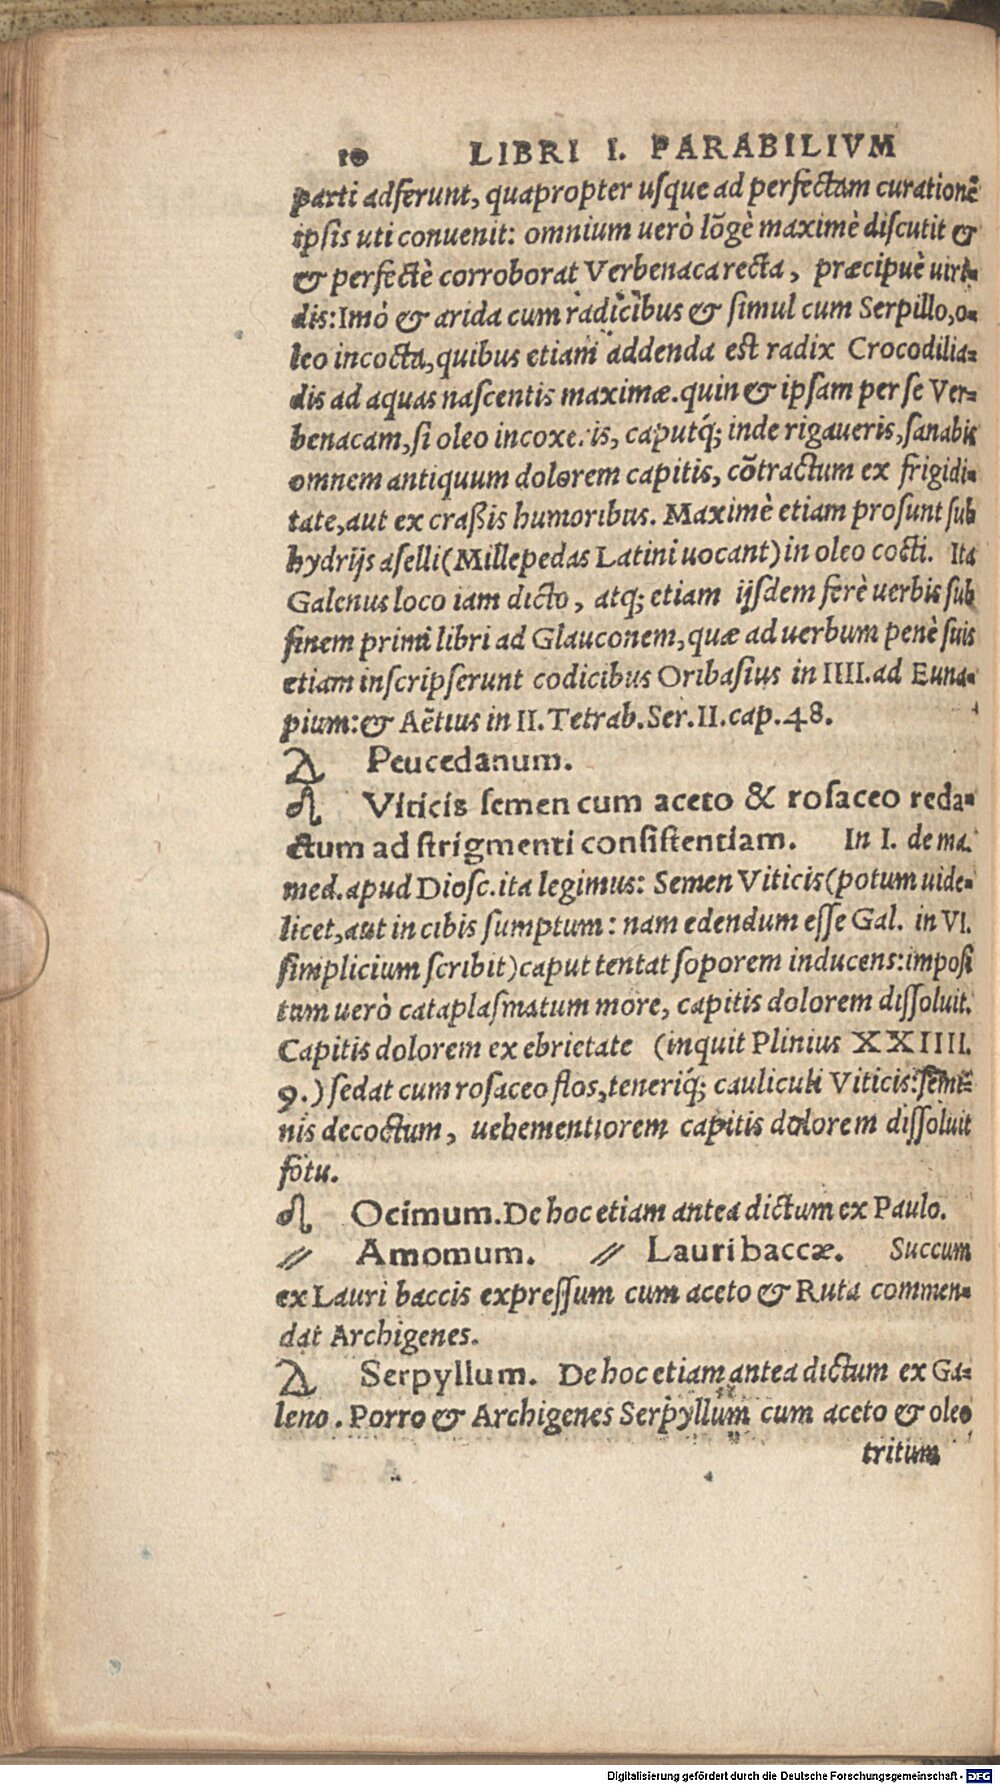 10 LIBRI I. PARABILIVM
parti adferunt, quapropter usque ad perfectam curationē
ipsis uti conuenit: omnium uerò lōgè maximè discutit &
& perfectè corroborat Verbenaca recta, præcipuè uiri-
dis: Imò & arida cum radicibus & simul cum Serpillo, o-
leo incocta, quibus etiam addenda est radix Crocodilia-
dis ad aquas nascentis maximæ. quin & ipsam per se Ver-
benacam, si oleo incoxeris, caputq́; inde rigaueris, sanabis
omnem antiquum dolorem capitis, cōtractum ex frigidi-
tate, aut ex craßis humoribus. Maximè etiam prosunt sub
hydrijs aselli (Millepedas Latini uocant) in oleo cocti. Ita
Galenus loco iam dicto, atq; etiam ijsdem ferè uerbis sub
finem primi libri ad Glauconem, quæ ad uerbum penè suis
etiam inscripserunt codicibus Oribasius in IIII. ad Euna-
pium: & Aëtius in II. Tetrab. Ser. II. cap. 48.
Peucedanum.
♌ Viticis semen cum aceto & rosaceo reda-
ctum ad strigmenti consistentiam. In I. de ma.
med. apud Diosc. ita legimus: Semen Viticis (potum uide-
licet, aut in cibis sumptum: nam edendum esse Gal. in VI.
simplicium scribit) caput tentat soporem inducens: imposi
tum uerò cataplasmatum more, capitis dolorem dissoluit.
Capitis dolorem ex ebrietate (inquit Plinius XXIIII.
9.) sedat cum rosaceo flos, teneriq́; cauliculi Viticis: semi-
nis decoctum, uehementiorem capitis dolorem dissoluit
fotu.
♌ Ocimum. De hoc etiam antea dictum ex Paulo.
// Amomum. // Lauri baccæ. Succum
ex Lauri baccis expressum cum aceto & Ruta commen-
dat Archigenes.
Serpyllum. De hoc etiam antea dictum ex Ga-
leno. Porro & Archigenes Serpyllum cum aceto & oleo
tritum
Digitalisierung gefördert durch die Deutsche Forschungsgemeinschaft - DFG